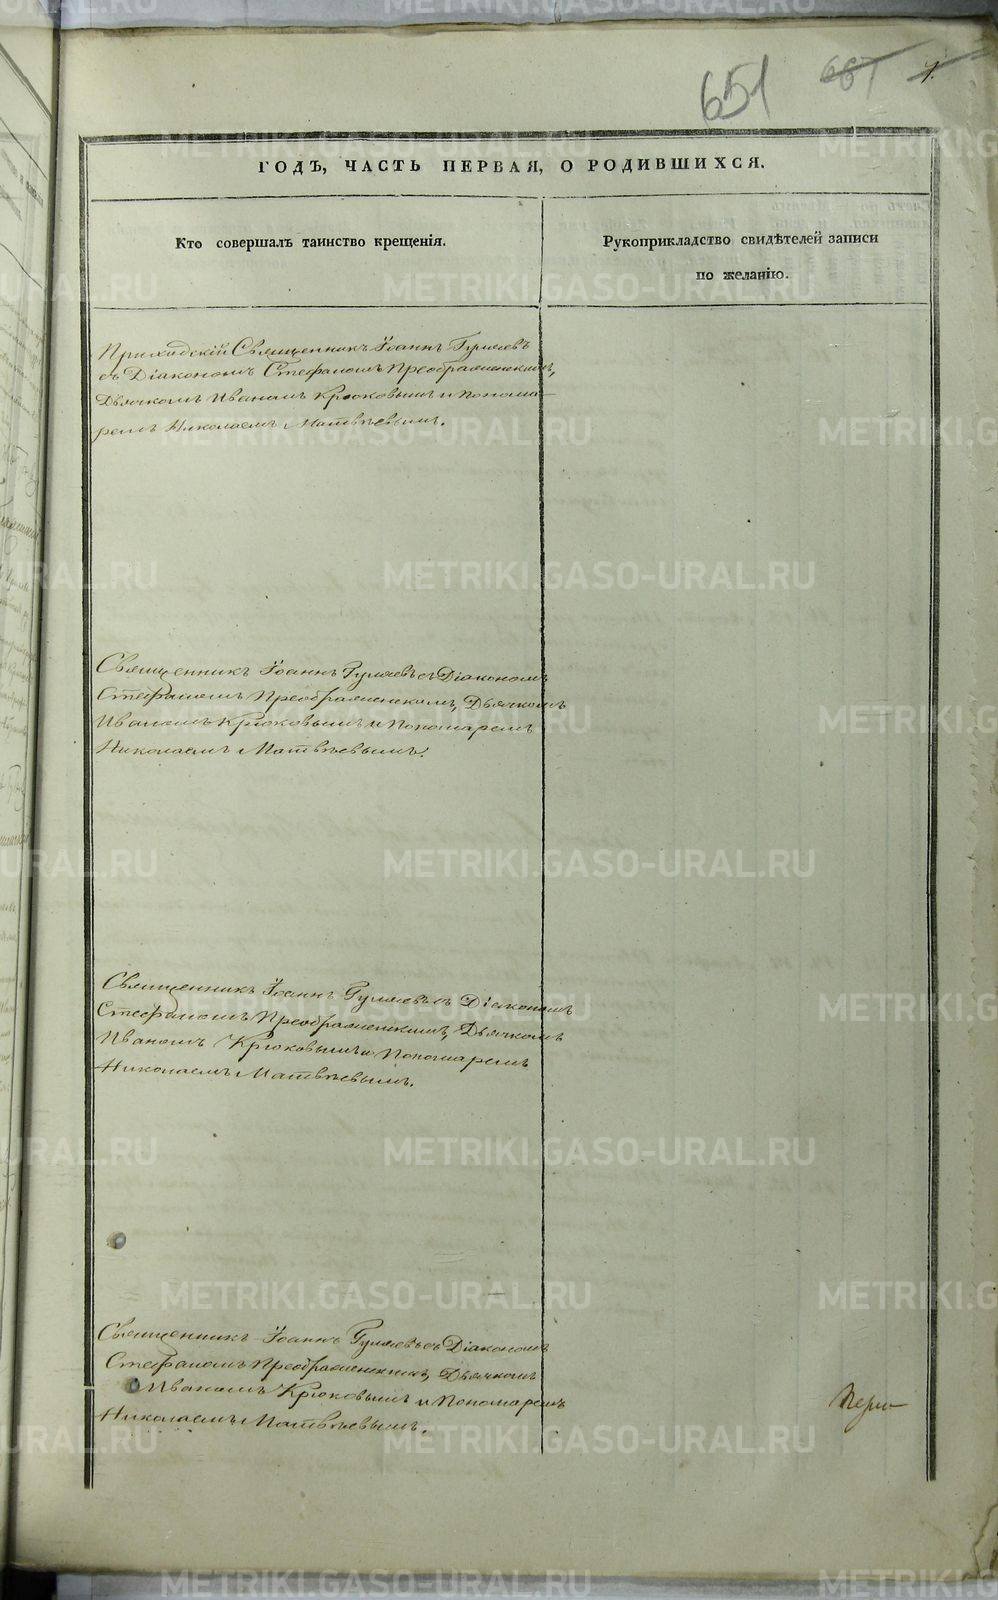 651 667 1.
ГОДЪ, ЧАСТЬ ПЕРВАЯ, О РОДИВШИХСЯ.
Кто совершалъ таинство крещенія.
Рукоприкладство свидѣтелей записи
по желанію.
Приходскій Священникъ Іоаннъ Гуляевъ
съ Діакономъ Стефаномъ Преображенскимъ,
Дьячкомъ Иваномъ Крюковымъ и Понома-
ремъ Николаемъ Матвѣевымъ.
Священникъ Іоаннъ Гуляевъ съ Діакономъ
Стефаномъ Преображенскимъ, Дьячкомъ
Иваномъ Крюковымъ и Пономаремъ
Николаемъ Матвѣевымъ.
Священникъ Іоаннъ Гуляевъ съ Діакономъ
Стефаномъ Преображенскимъ, Дьячкомъ
Иваномъ Крюковымъ и Пономаремъ
Николаемъ Матвѣевымъ.
Священникъ Іоаннъ Гуляевъ съ Діакономъ
Стефаномъ Преображенскимъ, Дьячкомъ
Иваномъ Крюковымъ и Пономаремъ
Николаемъ Матвѣевымъ.
METRIKI.GASO-URAL.RU